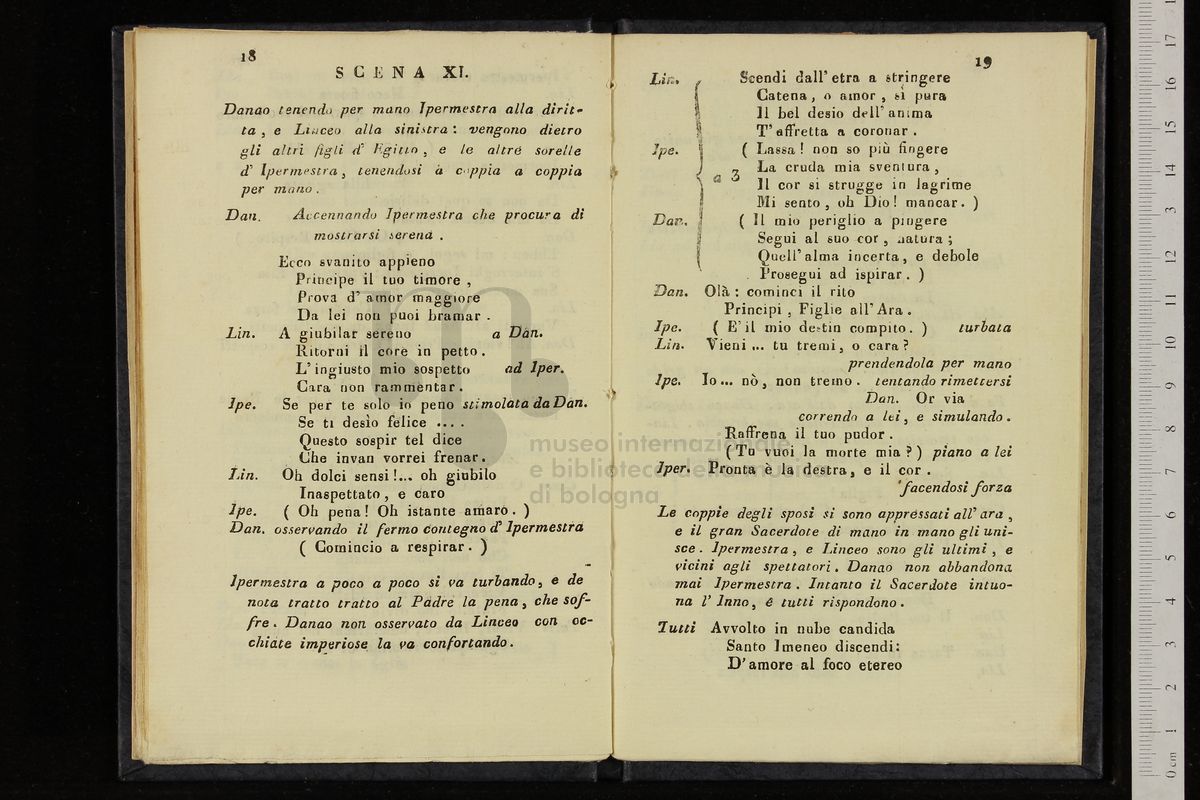 18
SCENA XI.
Danao tenendo per mano Ipermestra alla dirit-
ta, e Linceo alla sinistra: vengono dietro
gli altri figli d' Egitto, e le altre sorelle
d' Ipermestra, tenendosi a coppia a coppia
per mano.
Dan. Accennando Ipermestra che procura di
mostrarsi serena.
Ecco svanito appieno
Principe il tuo timore,
Prova d' amor maggiore
Da lei non puoi bramar.
Lin. A giubilar sereno a Dan.
Ritorni il core in petto.
L' ingiusto mio sospetto ad Iper.
Cara non rammentar.
Ipe. Se per te solo io peno stimolata da Dan.
Se ti desìo felice ....
Questo sospir tel dice
Che invan vorrei frenar.
Lin. Oh dolci sensi!... oh giubilo
Inaspettato, e caro
Ipe. ( Oh pena! Oh istante amaro. )
Dan. osservando il fermo contegno d' Ipermestra
( Comincio a respirar. )
Ipermestra a poco a poco si va turbando, e de
nota tratto tratto al Padre la pena, che sof-
fre. Danao non osservato da Linceo con oc-
chiate imperiose la va confortando.
19
Lin. Scendi dall' etra a stringere
Catena, o amor, sì pura
Il bel desio dell' anima
T' affretta a coronar.
Ipe. ( Lassa! non so più fingere
a 3 La cruda mia sventura,
Il cor si strugge in lagrime
Mi sento, oh Dio! mancar. )
Dan. ( Il mio periglio a pingere
Segui al suo cor, natura;
Quell' alma incerta, e debole
Prosegui ad ispirar. )
Dan. Olà: cominci il rito
Principi, Figlie all' Ara.
Ipe. ( E' il mio destin compito. ) turbata
Lin. Vieni ... tu tremi, o cara?
prendendola per mano
Ipe. Io... nò, non tremo. tentando rimettersi
Dan. Or via
correndo a lei, e simulando.
Raffrena il tuo pudor.
(Tu vuoi la morte mia?) piano a lei
Iper. Pronta è la destra, e il cor.
facendosi forza
Le coppie degli sposi si sono appressati all' ara,
e il gran Sacerdote di mano in mano gli uni-
sce. Ipermestra, e Linceo sono gli ultimi, e
vicini agli spettatori. Danao non abbandona
mai Ipermestra. Intanto il Sacerdote intuo-
na l' Inno, e tutti rispondono.
Tutti Avvolto in nube candida
Santo Imeneo discendi:
D' amore al foco etereo
museo internazionale
e biblioteca della musica
di bologna
0 cm 1 2 3 4 5 6 7 8 9 10 11 12 13 14 15 16 17